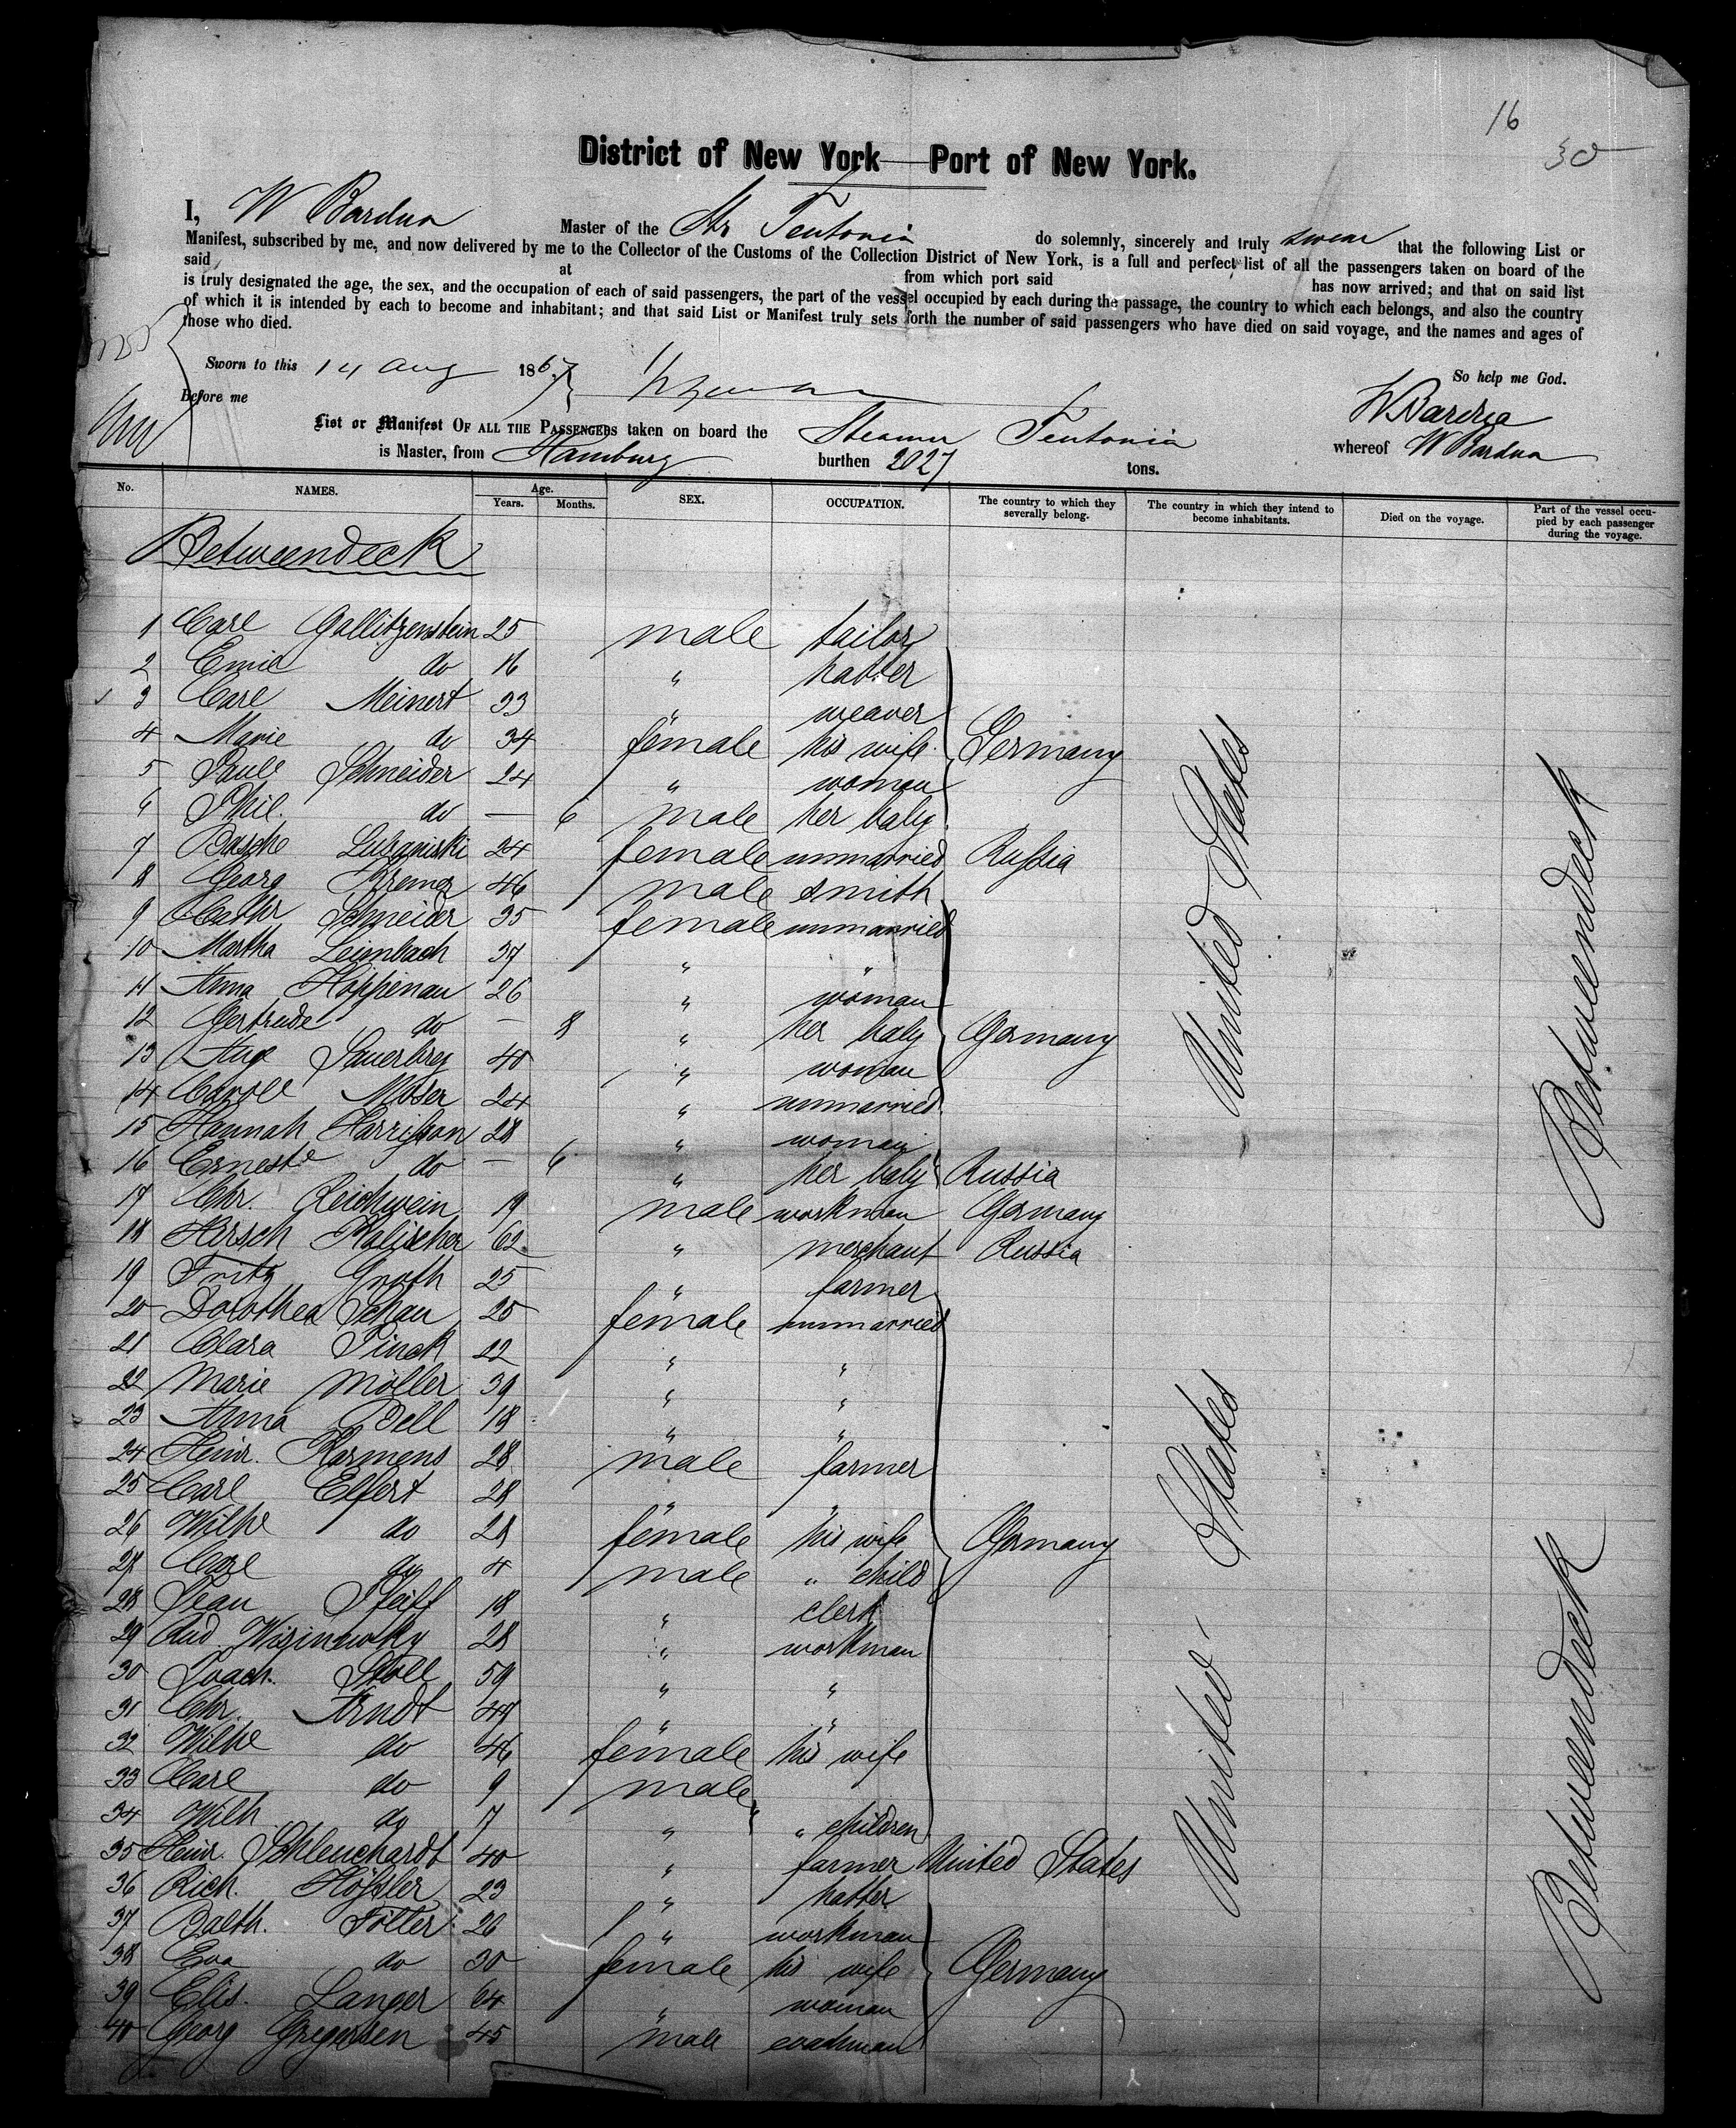 16
30
District of New York—Port of New York.
I, W Bardua Master of the Str Teutonia do solemnly, sincerely and truly swear that the following List or
Manifest, subscribed by me, and now delivered by me to the Collector of the Customs of the Collection District of New York, is a full and perfect list of all the passengers taken on board of the
said at from which port said has now arrived; and that on said list
is truly designated the age, the sex, and the occupation of each of said passengers, the part of the vessel occupied by each during the passage, the country to which each belongs, and also the country
of which it is intended by each to become and inhabitant; and that said List or Manifest truly sets forth the number of said passengers who have died on said voyage, and the names and ages of
those who died.
Sworn to this 14 Aug 1867 So help me God.
Before me W Bardua
List or Manifest OF ALL THE PASSENGERS taken on board the Steamer Teutonia whereof W Bardua
is Master, from Hamburg burthen 2027 tons.
No. NAMES. Age. Years. Months. SEX. OCCUPATION. The country to which they severally belong. The country in which they intend to become inhabitants. Died on the voyage. Part of the vessel occupied by each passenger during the voyage.
Betweendeck
1 Carl Gallitzenstein 25 male tailor
2 Emil do 16 " hatter
3 Carl Meinert 33 " weaver
4 Marie do 34 female his wife Germany
5 Paule Schneider 24 " woman
6 Phil. do — 6 male her baby
7 Basche Lubaniski 24 female unmarried Russia
8 Georg Kremer 46 male smith
9 Cathr Schneider 35 female unmarried
10 Martha Leimbach 37 " "
11 Anna Höppenau 26 " woman
12 Gertrude do — 8 " her baby Germany
13 Aug Sauerbrey 40 " woman
14 Carol Moser 24 " unmarried
15 Hannah Harrisson 28 " woman
16 Ernest do — 6 " her baby Russia
17 Chr. Reichwein 19 male workman Germany
18 Hirsch Kalischer 62 " merchant Russia
19 Fritz Groth 25 " farmer
20 Dorothea Schau 25 female unmarried
21 Clara Pinck 22 " "
22 Marie Möller 39 " "
23 Anna Dell 18 " "
24 Heinr. Harmens 28 male farmer
25 Carl Elfert 28 " "
26 Wilhe do 28 female his wife Germany
27 Carl do 4 male " child
28 Jean Pfeiff 18 " clerk
29 Rud. Wisinewsky 28 " workman
30 Joach. Stoll 59 " "
31 Chr. Arndt 47 " "
32 Wilhe do 46 female his wife
33 Carl do 9 male
34 Wilh. do 7 " " children
35 Heinr. Schleuchardt 40 " farmer United States
36 Rich. Hößler 23 " hatter
37 Balth. Foller 26 " workman
38 Eva do 30 female his wife Germany
39 Elis. Langer 64 " woman
40 Georg Gregersen 45 male coachman
United States
United States
Betweendeck
Betweendeck